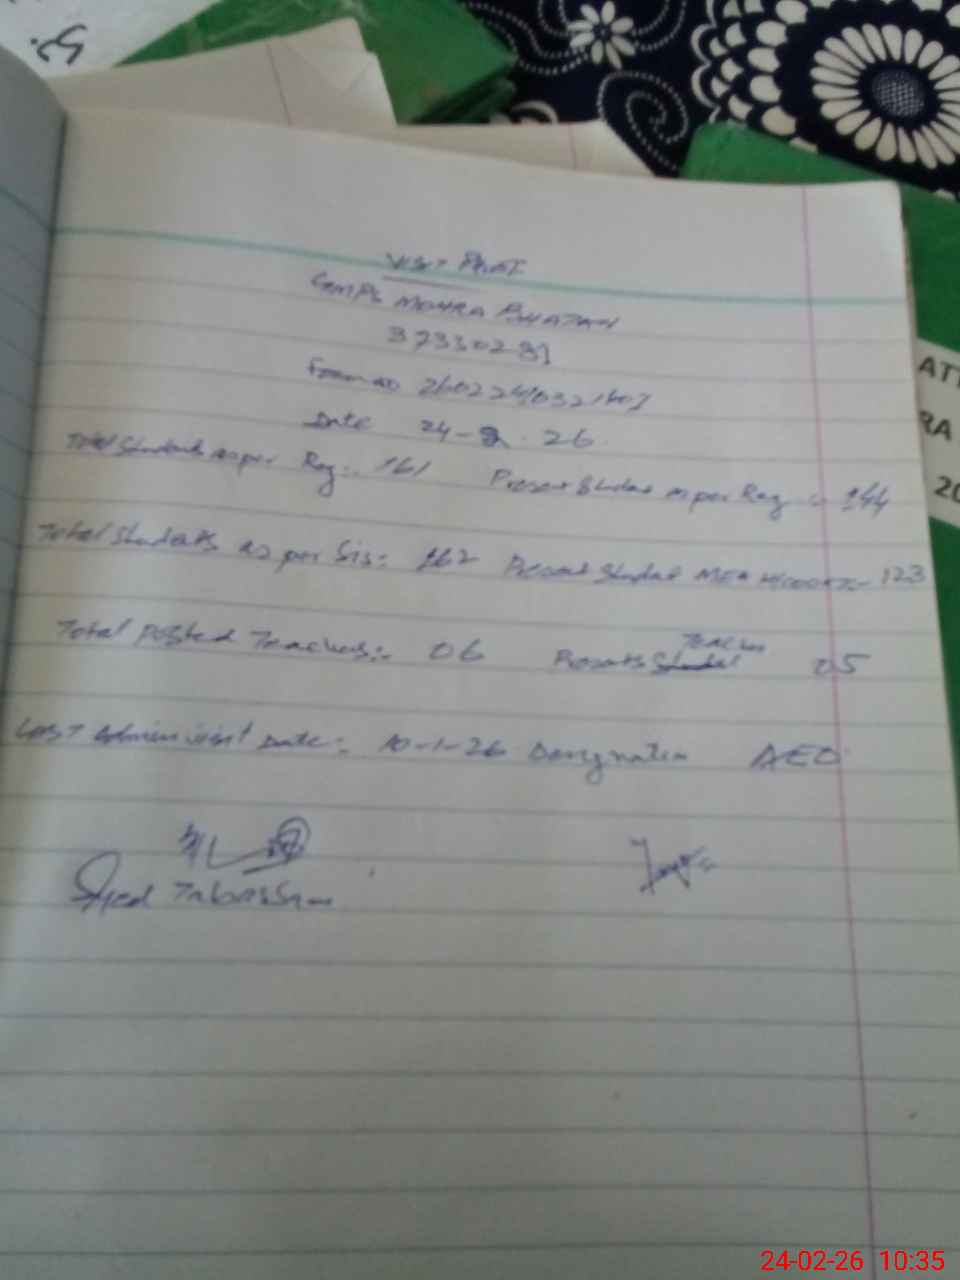 VISIT PROOF
GMPS MOHRA BHATAN
37330281
Date 24-2-26
Total Students as per Reg:. 161 Present Student as per Reg :- 144
Total Students as per Sis:- 162 Present Student MEA 123
Total posted Teachers:- 06 Presents Teacher 05
Last Admin visit Date:- 10-1-26 Designation AEO
Syed Tabassam
ATT
RA
20
24-02-26 10:35